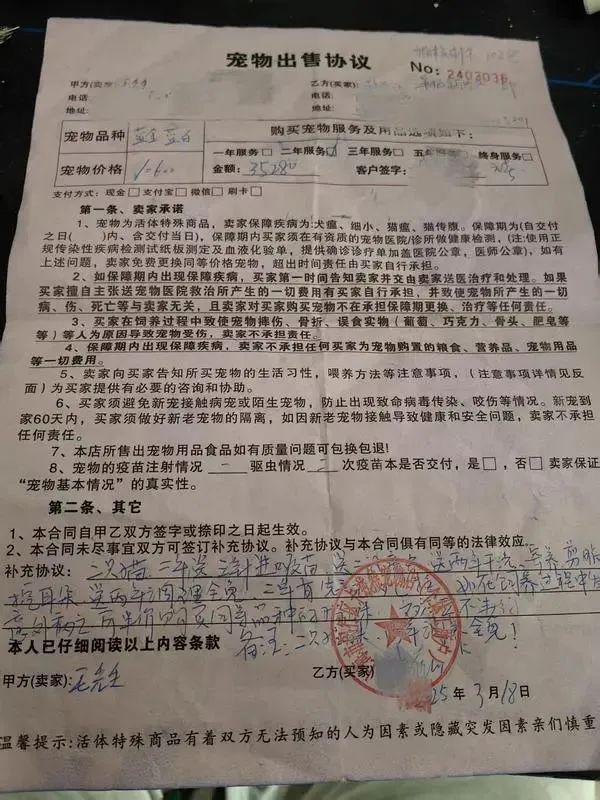 宠物出售协议
No: 2403036
甲方(卖家) 王先生 乙方(买家):
电话: 电话:
地址: 地址:
宠物品种 蓝金 蓝白 购买宠物服务及用品选项如下:
一年服务□ 二年服务☑ 三年服务□ 五年服务□ 终身服务□
宠物价格 金额: 3528 客户签字:
支付方式: 现金□ 支付宝□ 微信□ 刷卡□
第一条、卖家承诺
1、宠物为活体特殊商品,卖家保障疾病为犬瘟、细小、猫瘟、猫传腹,保障期为(自交付
之日( )内、含交付当日),保障期内买家须在有资质的宠物医院/诊所做健康检测,(注:使用正
规传染性疾病检测试纸板测定及血液化验单,提供确诊诊疗单加盖医院公章,医师公章),如有
上述问题,卖家免费更换同等价格宠物,超出时间责任由买家自行承担。
2、如保障期内出现保障疾病,买家第一时间告知卖家并交由卖家送医治疗和处理。如果
买家擅自主张送宠物医院救治所产生的一切费用有买家自行承担,并致使宠物所产生的一切
病、伤、死亡等与卖家无关,且卖家对买家购买宠物不在承担保障期更换、治疗等任何责任。
3、买家在饲养过程中致使宠物摔伤、骨折、误食实物(葡萄、巧克力、骨头、肥皂等
等)等人为原因导致宠物受伤,卖家不承担责任。
4、保障期内出现保障疾病,卖家不承担任何买家为宠物购置的粮食、营养品、宠物用品
等一切费用。
5、卖家向买家告知所买宠物的生活习性,喂养方法等注意事项,(注意事项详情见反
面)为买家提供有必要的咨询和协助。
6、买家须避免新宠接触病宠或陌生宠物,防止出现致命病毒传染、咬伤等情况。新宠到
家60天内,买家须做好新老宠物的隔离,如因新老宠物接触导致健康和安全问题,卖家不承担
任何责任。
7、本店所售出宠物用品食品如有质量问题可包换包退!
8、宠物的疫苗注射情况 一 驱虫情况 二 次疫苗本是否交付,是□,否□ 卖家保证
“宠物基本情况”的真实性。
第二条、其它
1、本合同自甲乙双方签字或捺印之日起生效。
2、本合同未尽事宜双方可签订补充协议。补充协议与本合同俱有同等的法律效应。
补充协议: 二只猫 二年送 进口疫苗 送 送两年干洗、营养 剪
掏耳朵 送两年 全免 二年 如在饲养过程中
意外 同等品种的
本人已仔细阅读以上内容条款 备注: 二只 全免!
甲方(卖家): 王先生 乙方(买家)
25 年 3 月 18 日
温馨提示:活体特殊商品有着双方无法预知的人为因素或隐藏突发因素亲们慎重